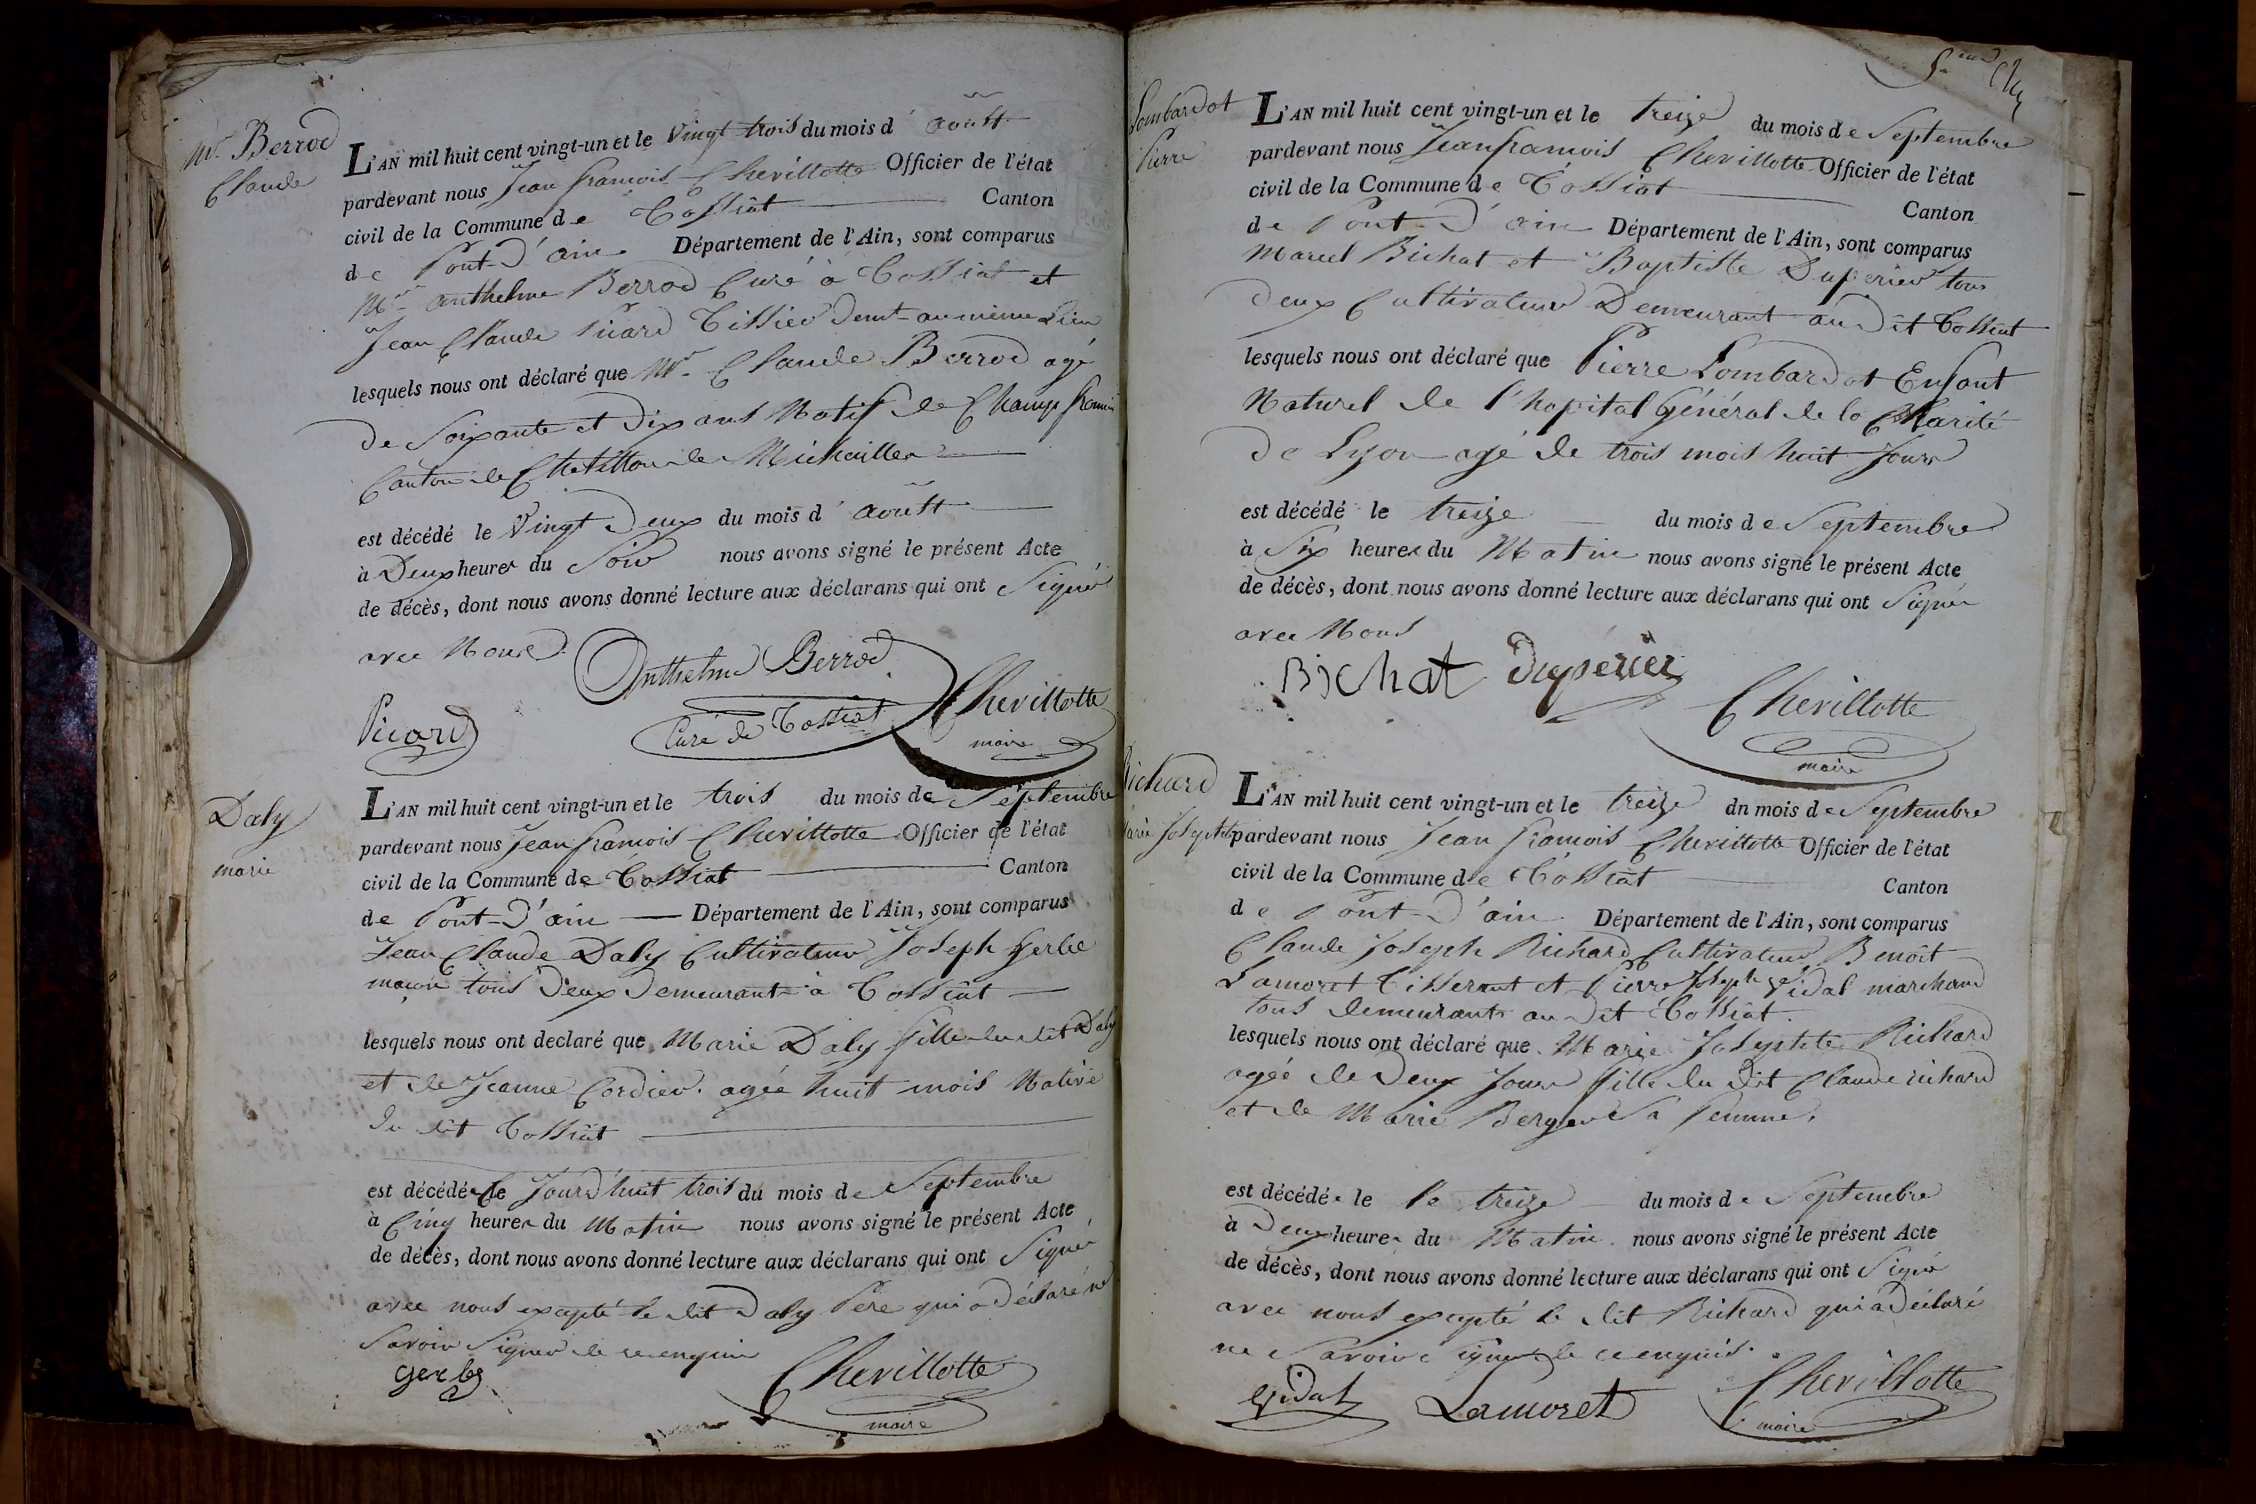 Mr. Berrod
Claude
L'AN mil huit cent vingt-un et le Vingt trois du mois d'aoûst
pardevant nous Jean françois Chevillotte Officier de l'état
civil de la Commune de Tossiat Canton
de Pont-D'ain Département de l'Ain, sont comparus
Mr. anthelme Berrod Curé à Tossiat et
Jean Claude Picard Tissier demt au même Lieu
lesquels nous ont déclaré que Mr. Claude Berrod agé
de Soixante et Dix ans Natif de Champfromier
Canton de Chatillon de Michailles
est décédé le Vingt Deux du mois d'aoûst
à Deux heures du Soir nous avons signé le présent Acte
de décès, dont nous avons donné lecture aux déclarans qui ont Signés
avec Nous.
Anthelme Berrod
Curé de Tossiat
Picard
Chevillotte
maire
Daly
marie
L'AN mil huit cent vingt-un et le trois du mois de Septembre
pardevant nous Jean françois Chevillotte Officier de l'état
civil de la Commune de Tossiat Canton
de Pont-D'ain Département de l'Ain, sont comparus
Jean Claude Daly Cultivateur Joseph Gerbe
maçon tous Deux Demeurants à Tossiat
lesquels nous ont declaré que Marie Daly fille du dit Daly
et de Jeanne Cordier agée huit mois Native
Du dit Tossiat
est décédée le Jourd'huit trois du mois de Septembre
à Cinq heures du Matin nous avons signé le présent Acte
de décès, dont nous avons donné lecture aux déclarans qui ont Signés
avec nous excepté le dit Daly Père qui a Déclaré ne
Savoir Signer de ce enquis
Gerbe
Chevillotte
maire
Lombardot
Pierre
L'AN mil huit cent vingt-un et le treize du mois de Septembre
pardevant nous Jean françois Chevillotte Officier de l'état
civil de la Commune de Tossiat Canton
de Pont-D'ain Département de l'Ain, sont comparus
Marcel Bichat et Baptiste Duperier tous
deux Cultivateurs Demeurant au Dit Tossiat
lesquels nous ont déclaré que Pierre Lombardot Enfant
Naturel de l'hopital Général de la Charité
de Lyon agé de trois mois huit Jours
est décédé le treize du mois de Septembre
à Six heures du Matin nous avons signé le présent Acte
de décès, dont nous avons donné lecture aux déclarans qui ont Signés
avec Nous
Bichat Dupérier
Chevillotte
maire
Richard
Marie Josephte
L'AN mil huit cent vingt-un et le treize dn mois de Septembre
pardevant nous Jean françois Chevillotte Officier de l'état
civil de la Commune de Tossiat Canton
de Pont-D'ain Département de l'Ain, sont comparus
Claude Joseph Richard Cultivateur Benoît
Lamoret Tisserant et Pierre Joseph Vidal marchand
tous demeurants au Dit Tossiat.
lesquels nous ont déclaré que Marie Josephte Richard
agée de Deux Jours fille du dit Claude richard
et de Marie Berger Sa femme.
est décédée le le treize du mois de Septembre
à Deux heures du Matin nous avons signé le présent Acte
de décès, dont nous avons donné lecture aux déclarans qui ont Signé
avec nous excepté le dit Richard qui a Déclaré
ne Savoir Signer de ce enquis.
Vidal Lamoret
Chevillotte
maire